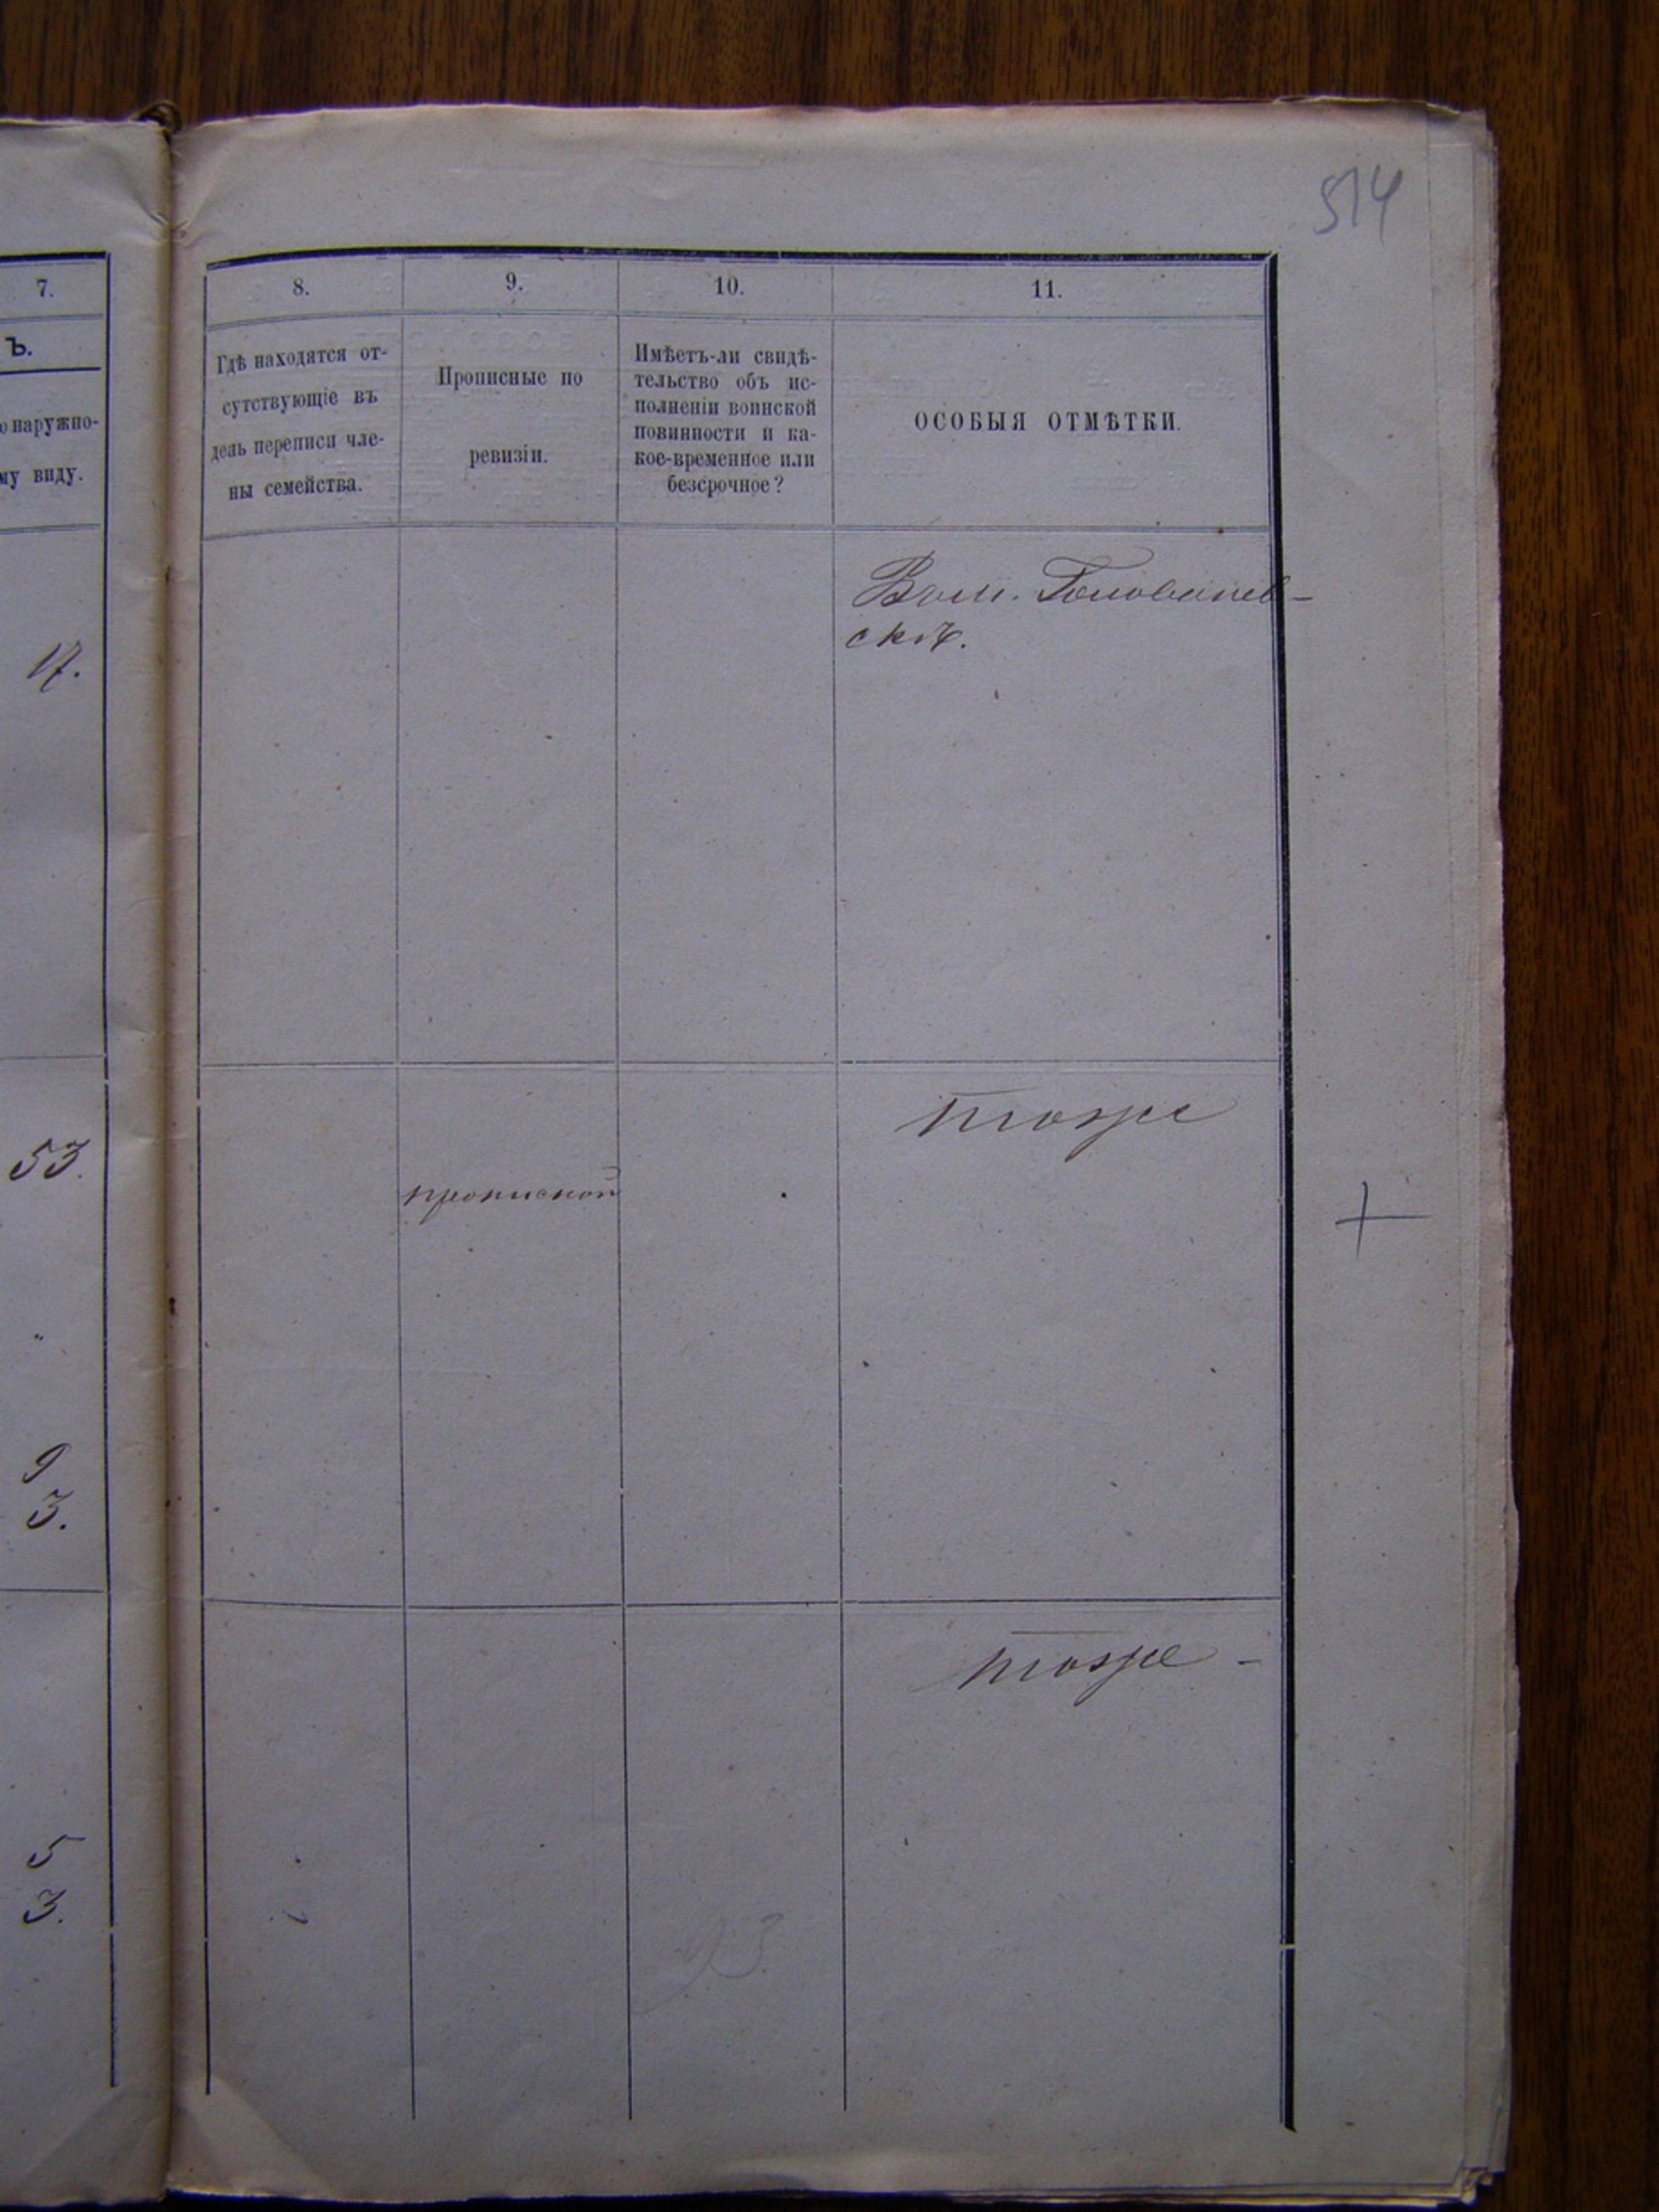 514
7.
Ъ.
о наружно-
му виду.
17.
53.
"
9
3.
5
3.
8.
9.
10.
11.
Гдѣ находятся от-
сутствующіе въ
день переписи чле-
ны семейства.
Прописные по
ревизіи.
Имѣетъ-ли свидѣ-
тельство объ ис-
полненіи воинской
повинности и ка-
кое-временное или
безсрочное?
ОСОБЫЯ ОТМѢТКИ.
Въ м. Головانев-
скѣ.
тоже
прописной
+
тоже -